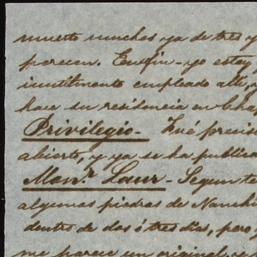 muerto muchos ya de tres y
parecen. Enfin - yo estoy
inutilmente empleado allí, y
hace su residencia en Chap
Privilegio - Fué precis
abierto, y ya se ha publica
Monr. Laur - Segun te
algunas piedras de Nanchi
dentes de dos ó tres dias, pero
me parece un original